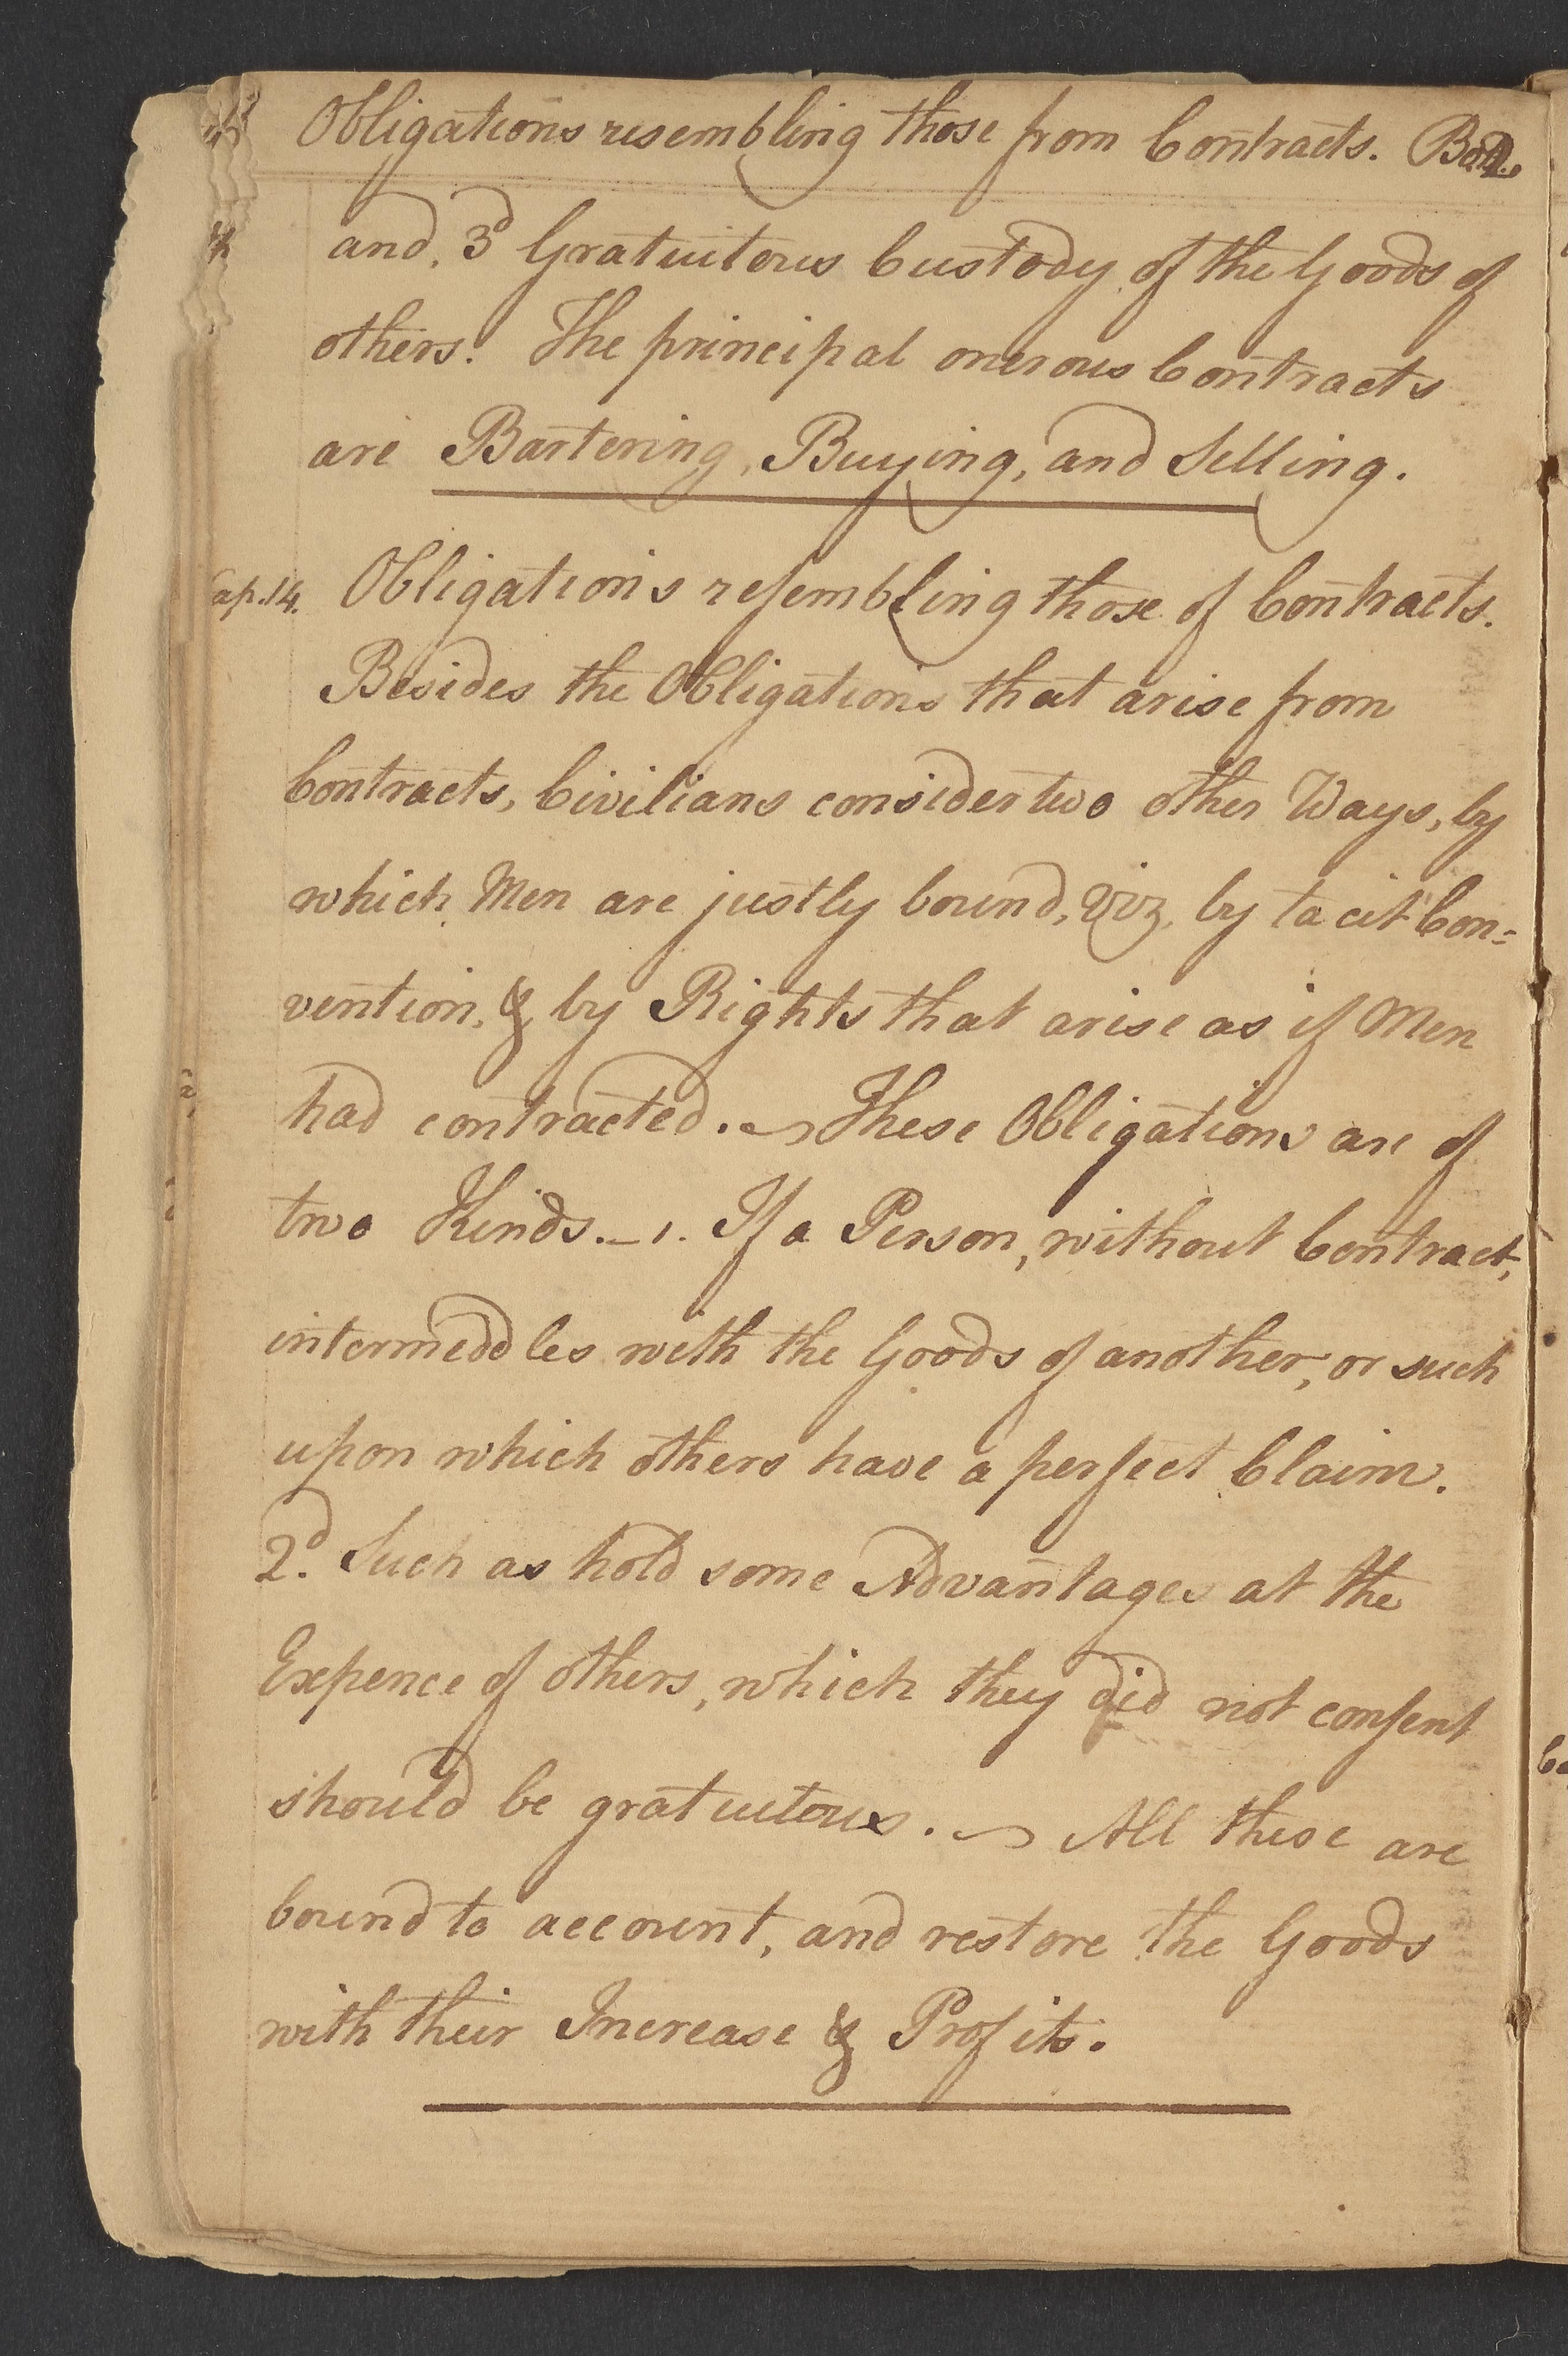 Obligations resembling those from Contracts.
and, 3d Gratuitous Custody of the Goods of
others. The principal onerous Contracts
are Bartering, Buying, and Selling.
Cap. 14. Obligations resembling those of Contracts.
Besides the Obligations that arise from
Contracts, Civilians consider two other Ways, by
which Men are justly bound, Viz. by tacit Con=
vention, & by Rights that arise as if Men
had contracted. ~ These Obligations are of
two Kinds. _ 1. If a Person, without Contract,
intermeddles with the Goods of another, or such
upon which others have a perfect Claim.
2d. Such as hold some Advantages at the
Expence of others, which they did not consent
should be gratuitous. ~ All these are
bound to account, and restore the Goods
with their Increase & Profits.